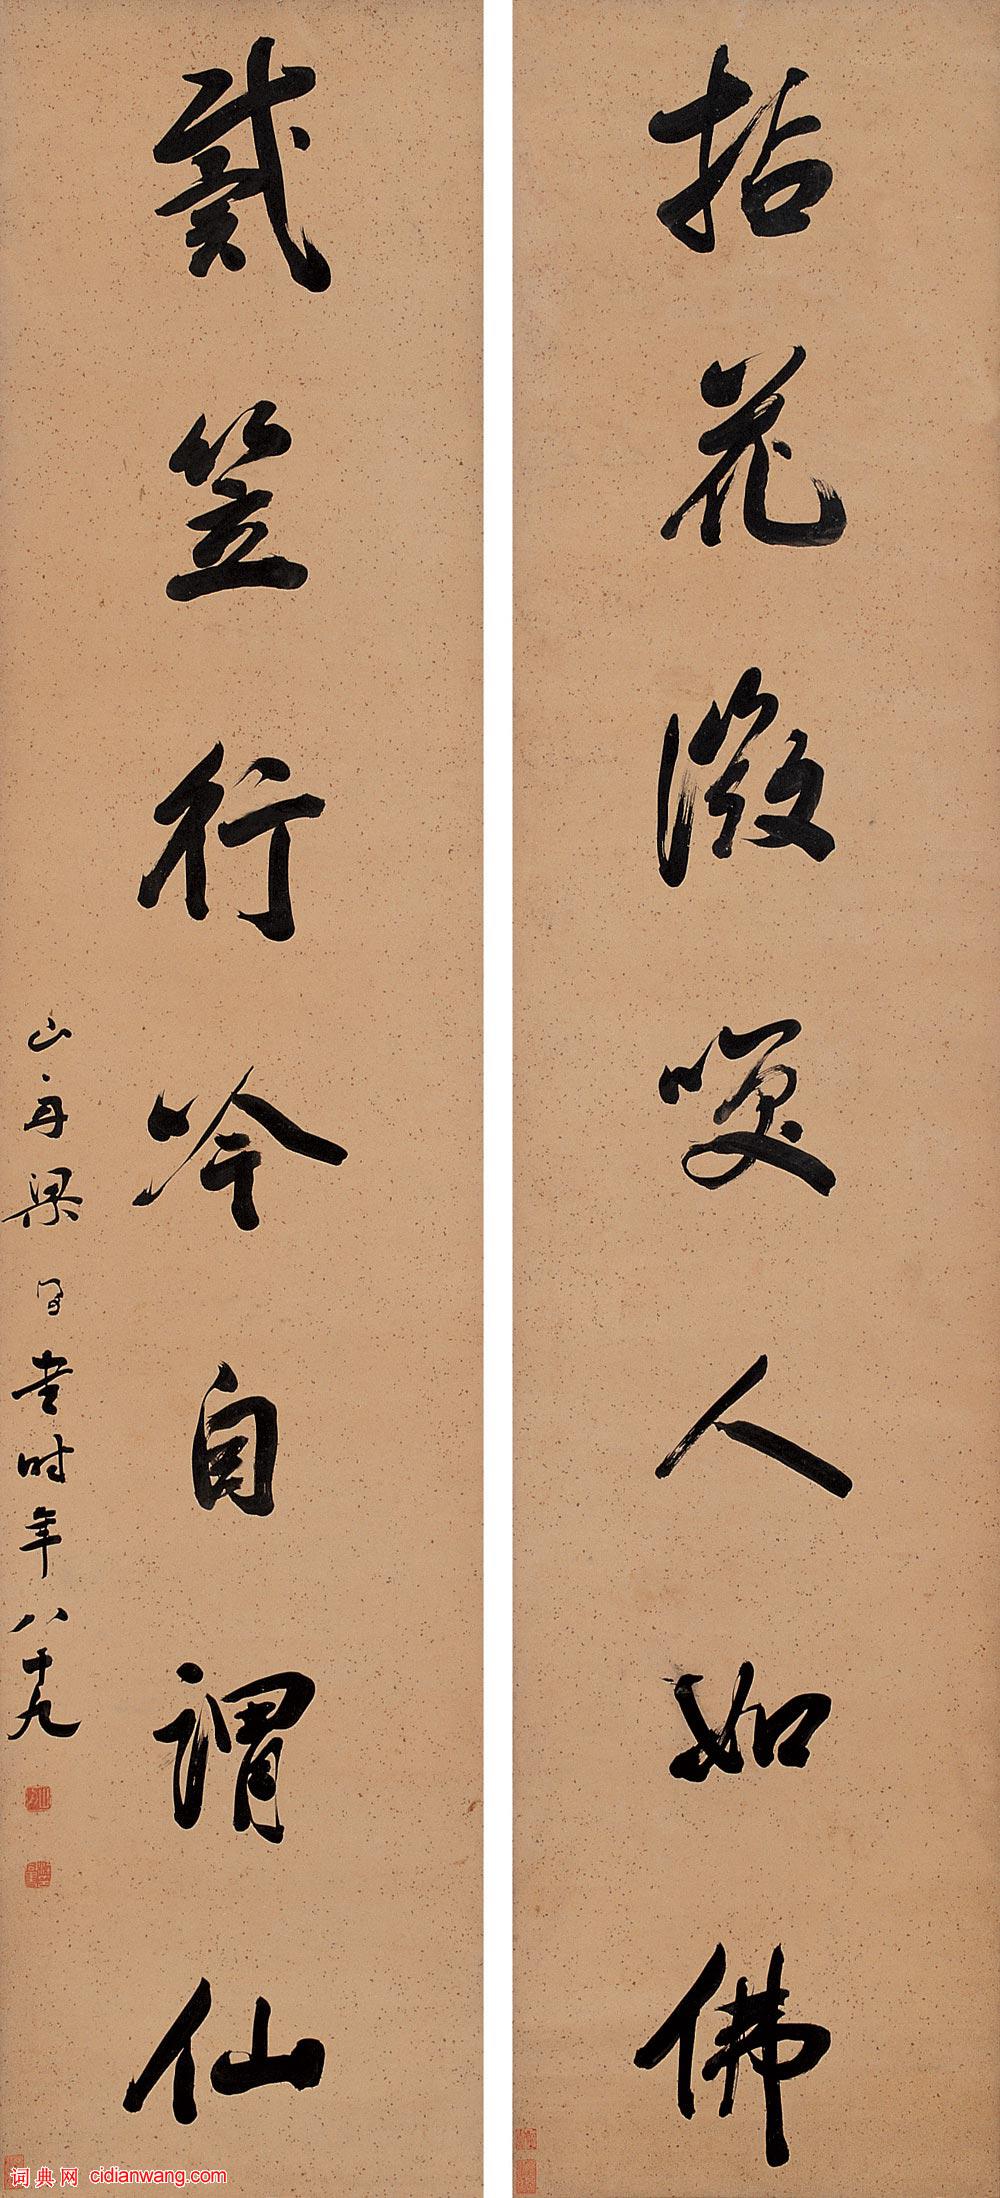 拈花微笑人如佛
戴笠行吟自谓仙
山舟梁同书时年八十九
词典网 cidianwang.com